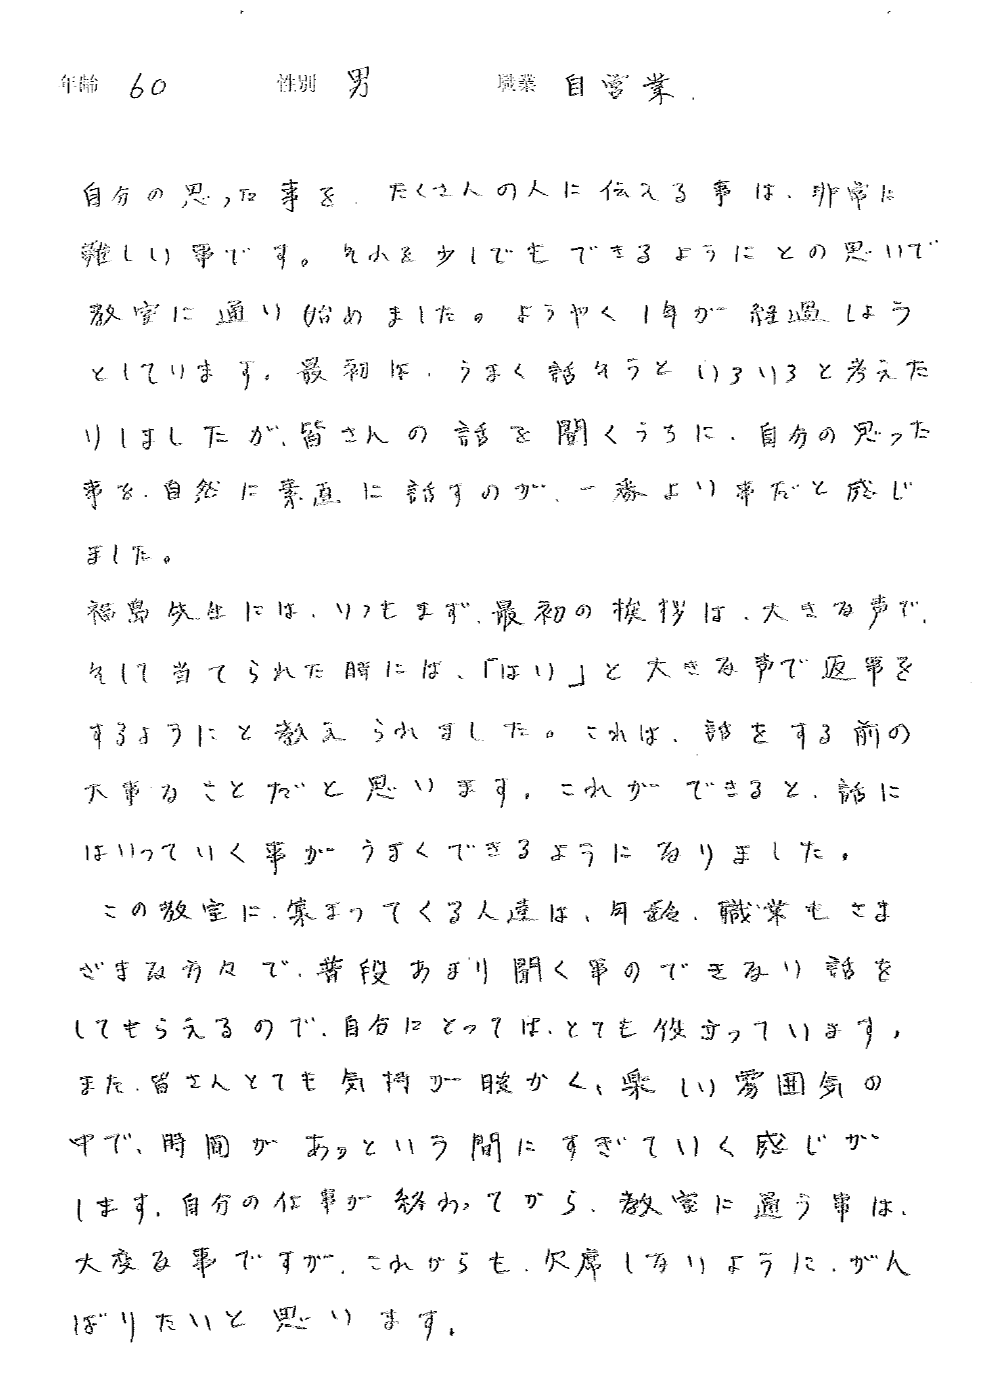 年齢 60 性別 男 職業 自営業.
自分の思った事を、たくさんの人に伝える事は、非常に
難しい事です。それを少しでもできるようにとの思いで
教室に通い始めました。ようやく1年が経過しよう
としています。最初は、うまく話そうといろいろと考えた
りしましたが、皆さんの話を聞くうちに、自分の思った
事を、自然に素直に話すのが、一番よい事だと感じ
ました。
福島先生には、いつもまず、最初の挨拶は、大きな声で、
そして当てられた時には、「はい」と大きな声で返事を
するようにと教えられました。これは、話をする前の
大事なことだと思います。これができると、話に
はいっていく事がうまくできるようになりました。
この教室に、集まってくる人達は、年齢、職業もさま
ざまな方々で、普段あまり聞く事のできない話を
してもらえるので、自分にとっては、とても役立っています。
また、皆さんとても気持が暖かく、楽しい雰囲気の
中で、時間があっという間にすぎていく感じが
します。自分の仕事が終わってから、教室に通う事は、
大変な事ですが、これからも、欠席しないように、がん
ばりたいと思います。